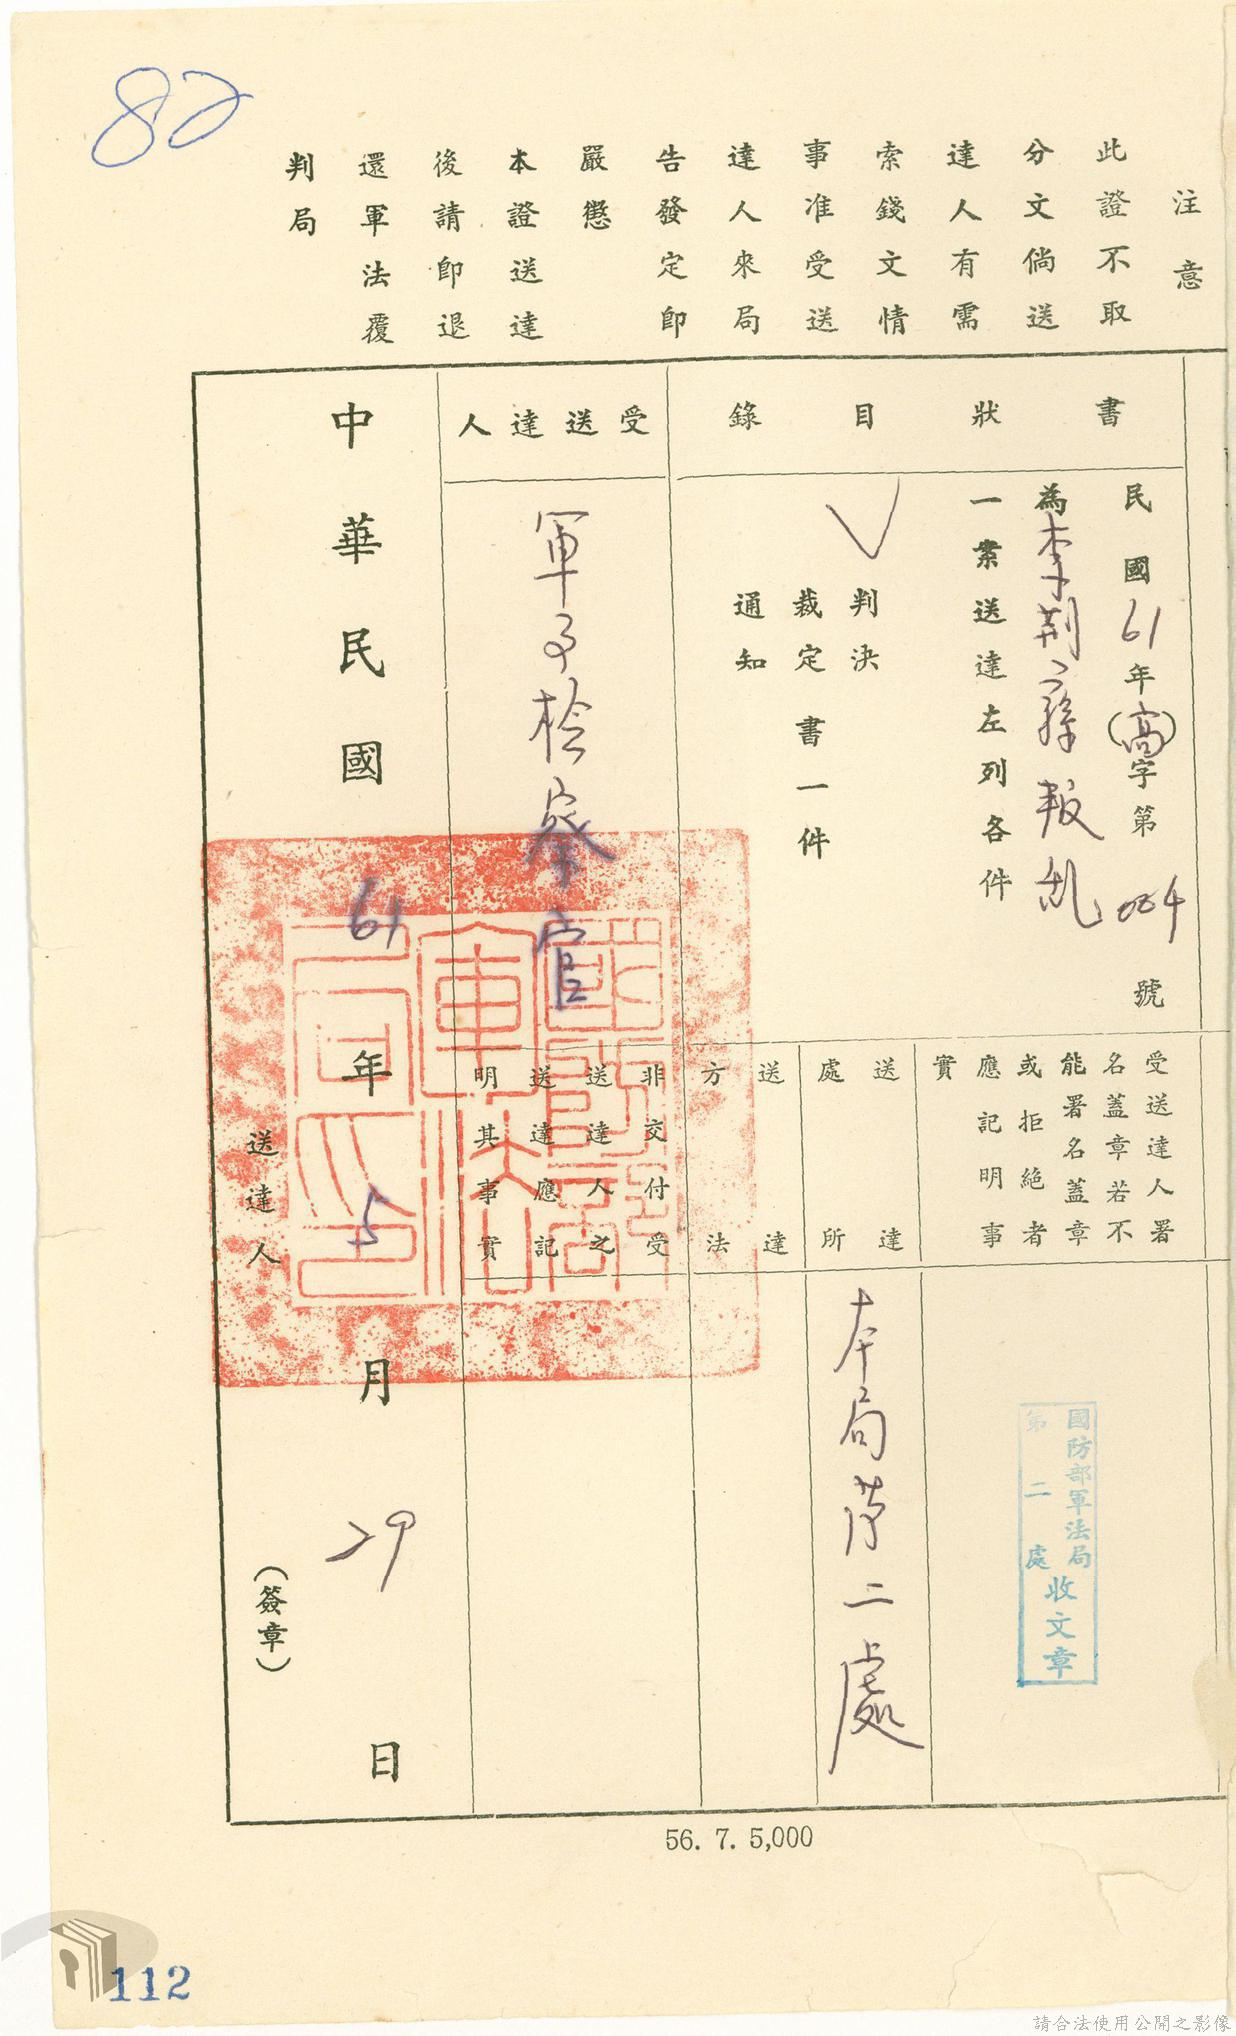 82
注意
此證不取
分文倘送
達人有需
索錢文情
事准受送
達人來局
告發定即
嚴懲
本證送達
後請即退
還軍法覆
判局
書狀目錄
民國61年(高)字第004號
為李荊蓀叛乱
一案送達左列各件
✓判決
裁定書一件
通知
受送達人
軍事檢察官
受送達人署
名蓋章若不
能署名蓋章
或拒絕者
應記明事
實
國防部軍法局
第二處
收文章
送達
處所
本局第二處
送達
方法
非交付受
送達人之
送達應記
明其事實
國防部軍法局印
中華民國61年5月29日
送達人
(簽章)
56. 7. 5,000
112
請合法使用公開之影像